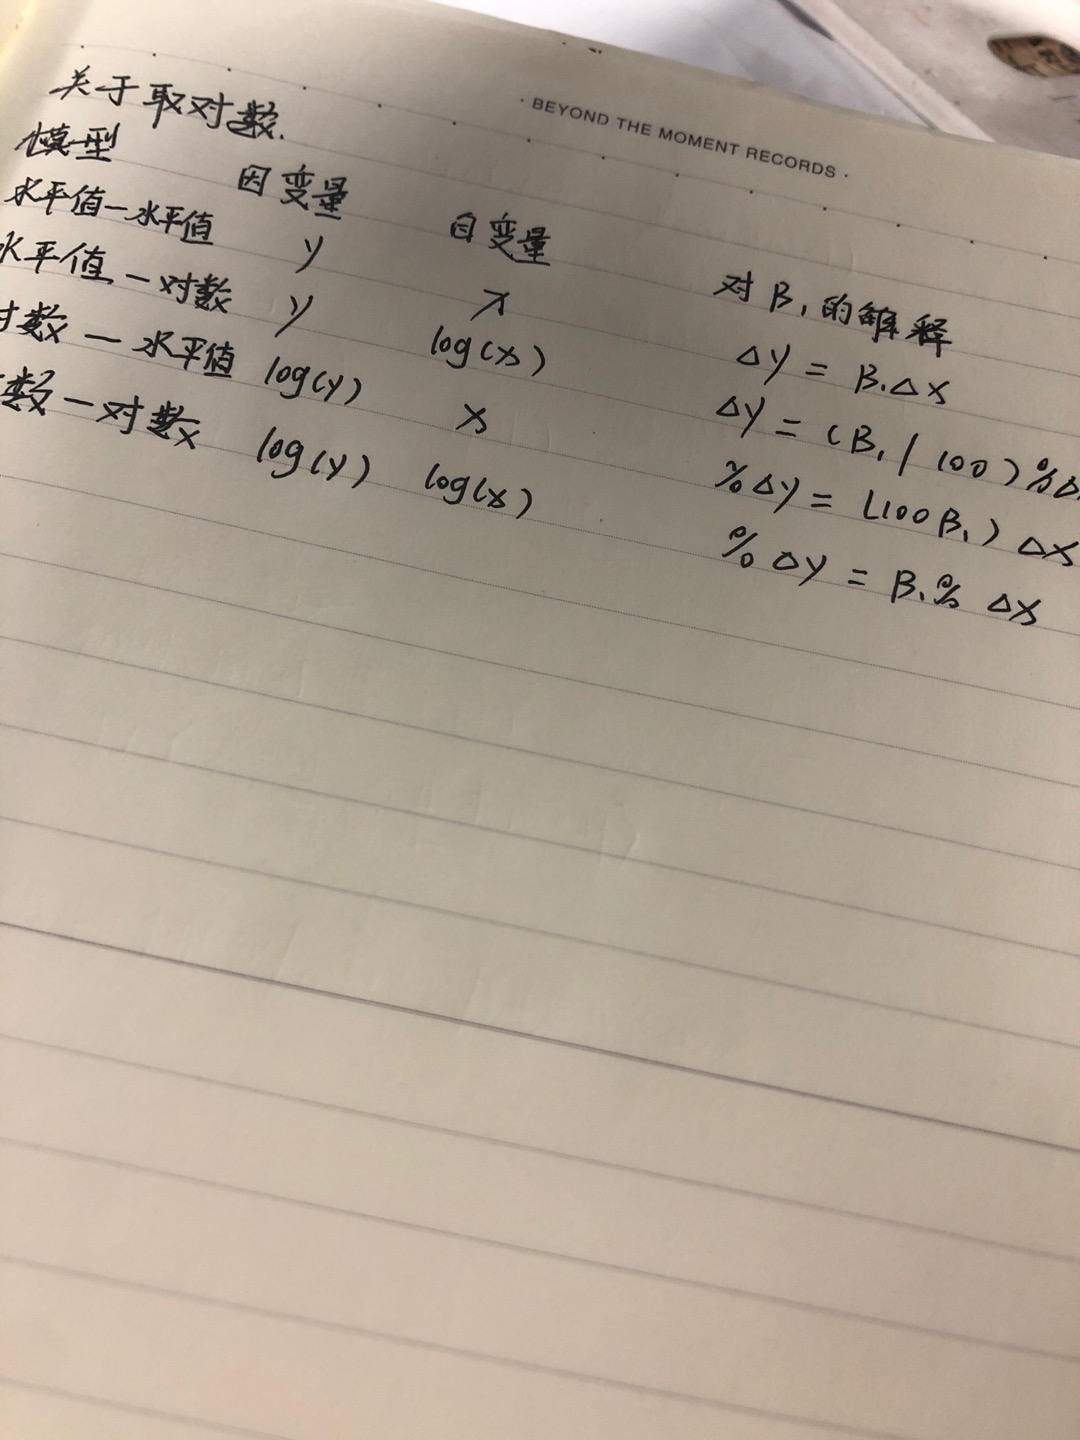 · BEYOND THE MOMENT RECORDS ·
关于取对数.
模型 因变量 自变量 对 β₁ 的解释
水平值—水平值 y x Δy = β₁Δx
水平值—对数 y log(x) Δy = (β₁/100)%Δ
对数—水平值 log(y) x %Δy = (100β₁)Δx
数—对数 log(y) log(x) %Δy = β₁%Δx